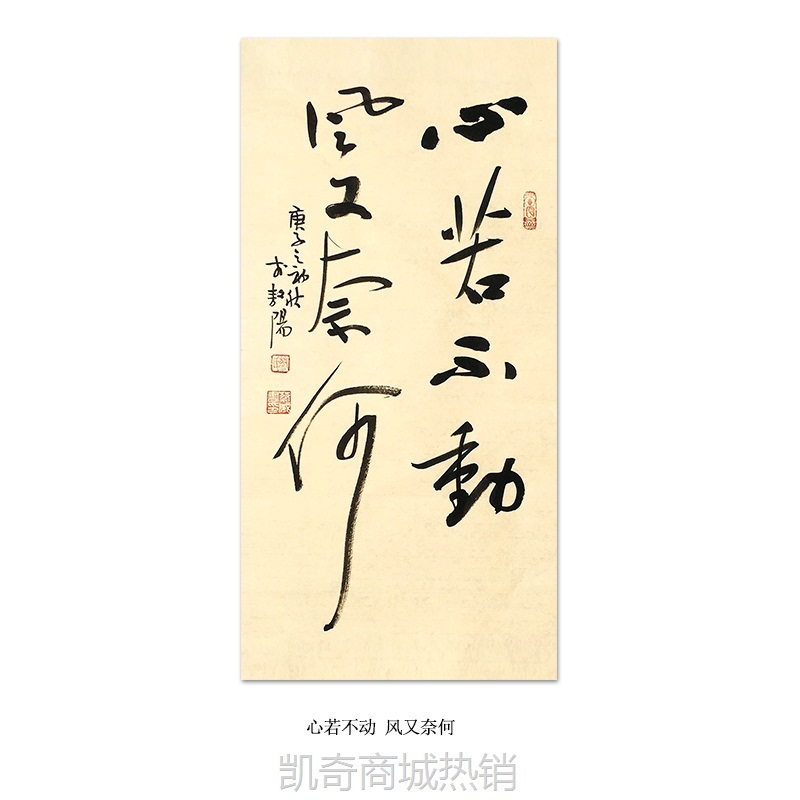 心若不動
风又奈何
庚子之初秋
於敦陽
心若不动 风又奈何
凯奇商城热销